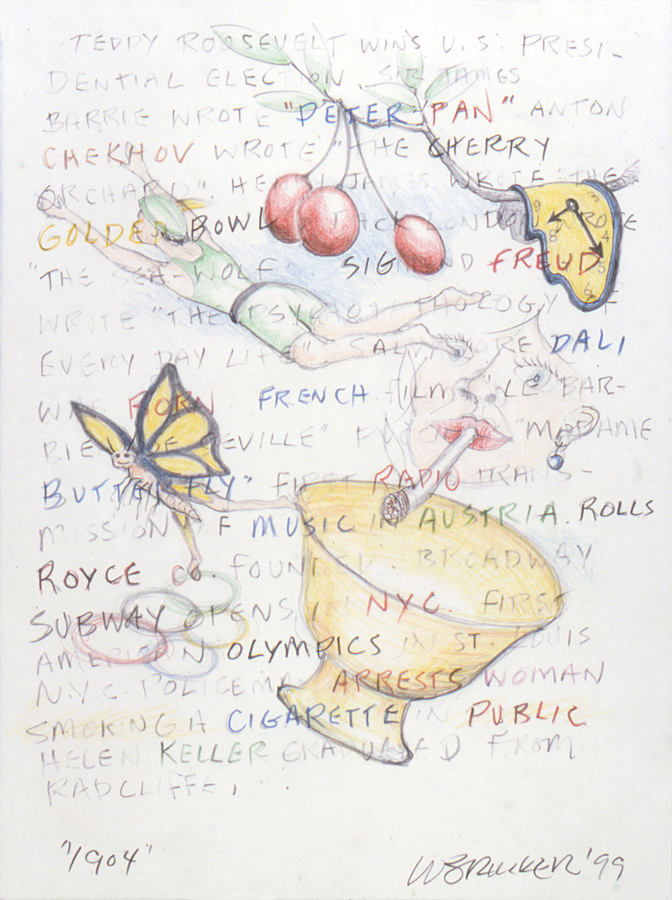 TEDDY ROOSEVELT WINS U.S. PRESI-
DENTIAL ELECTION. SIR JAMES
BARRIE WROTE "PETER PAN" ANTON
CHEKHOV WROTE "THE CHERRY
ORCHARD". HENRY JAMES WROTE "THE
GOLDEN BOWL JACK LONDON WROTE
"THE SEA-WOLF". SIGMUND FREUD
WROTE "THE PSYCHOPATHOLOGY OF
EVERY DAY LIFE" SALVADORE DALI
WAS BORN. FRENCH FILM "LE BAR-
BIER DE SEVILLE" PUCCINI "MADAME
BUTTERFLY" FIRST RADIO TRANS-
MISSION OF MUSIC IN AUSTRIA. ROLLS
ROYCE CO. FOUNDED. BROADWAY
SUBWAY OPENS IN NYC. FIRST
AMERICAN OLYMPICS IN ST. LOUIS
N.Y.C. POLICEMAN ARRESTS WOMAN
SMOKING A CIGARETTE IN PUBLIC
HELEN KELLER GRADUATED FROM
RADCLIFFE.
"1904"
'99